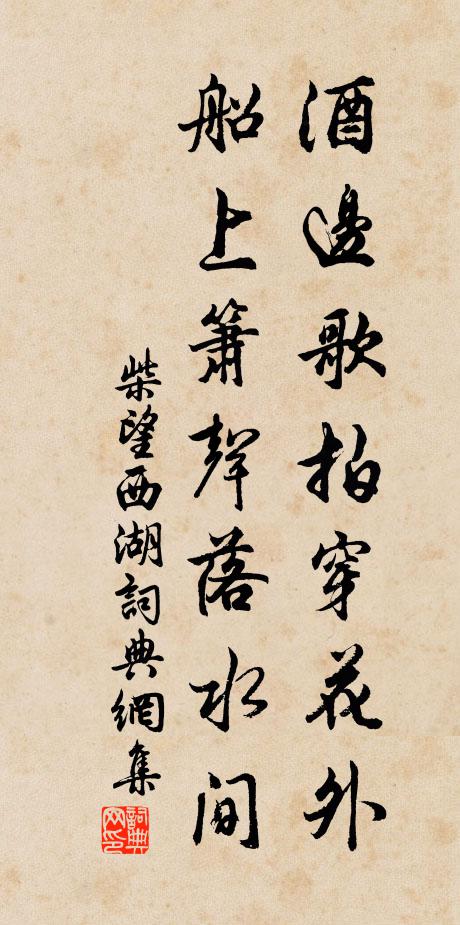 酒邊歌拍穿花外
船上簫聲落水間
柴望西湖詞典網集
詞典网印